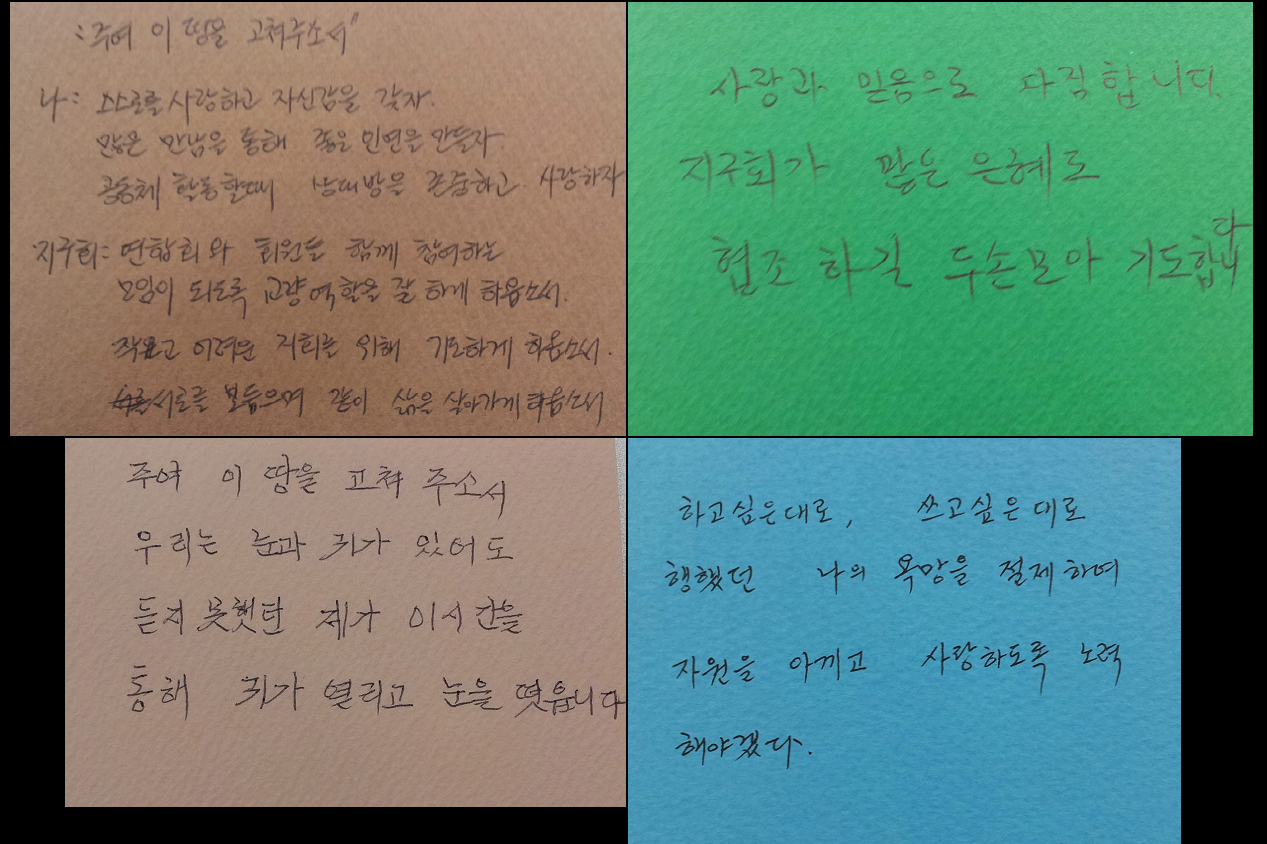 :주여 이 땅을 고쳐주소서"
나: 스스로를 사랑하고 자신감을 갖자.
많은 만남을 통해 좋은 인연을 만들자
공동체 활동할때 상대방을 존중하고 사랑하자
지구회: 연합회와 회원들 함께 참여하는
모임이 되도록 교량역할을 잘 하게 하옵소서.
작고 어려운 저희를 위해 기도하게 하옵소서.
서로를 보듬으며 같이 삶을 살아가게 하옵소서
사랑과 믿음으로 다짐합니다.
지구회가 많은 은혜로
협조 하길 두손모아 기도합니다
주여 이 땅을 고쳐 주소서
우리는 눈과 귀가 있어도
듣지 못했던 제가 이시간을
통해 귀가 열리고 눈을 떳읍니다
하고싶은대로, 쓰고싶은대로
행했던 나의 욕망을 절제하여
자원을 아끼고 사랑하도록 노력
해야겠다.